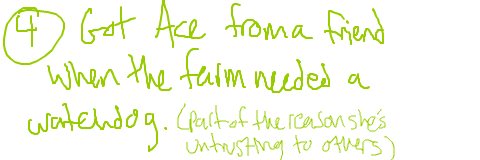 4 Got Ace from a friend
when the farm needed a
watchdog. (part of the reason she's
untrusting to others)